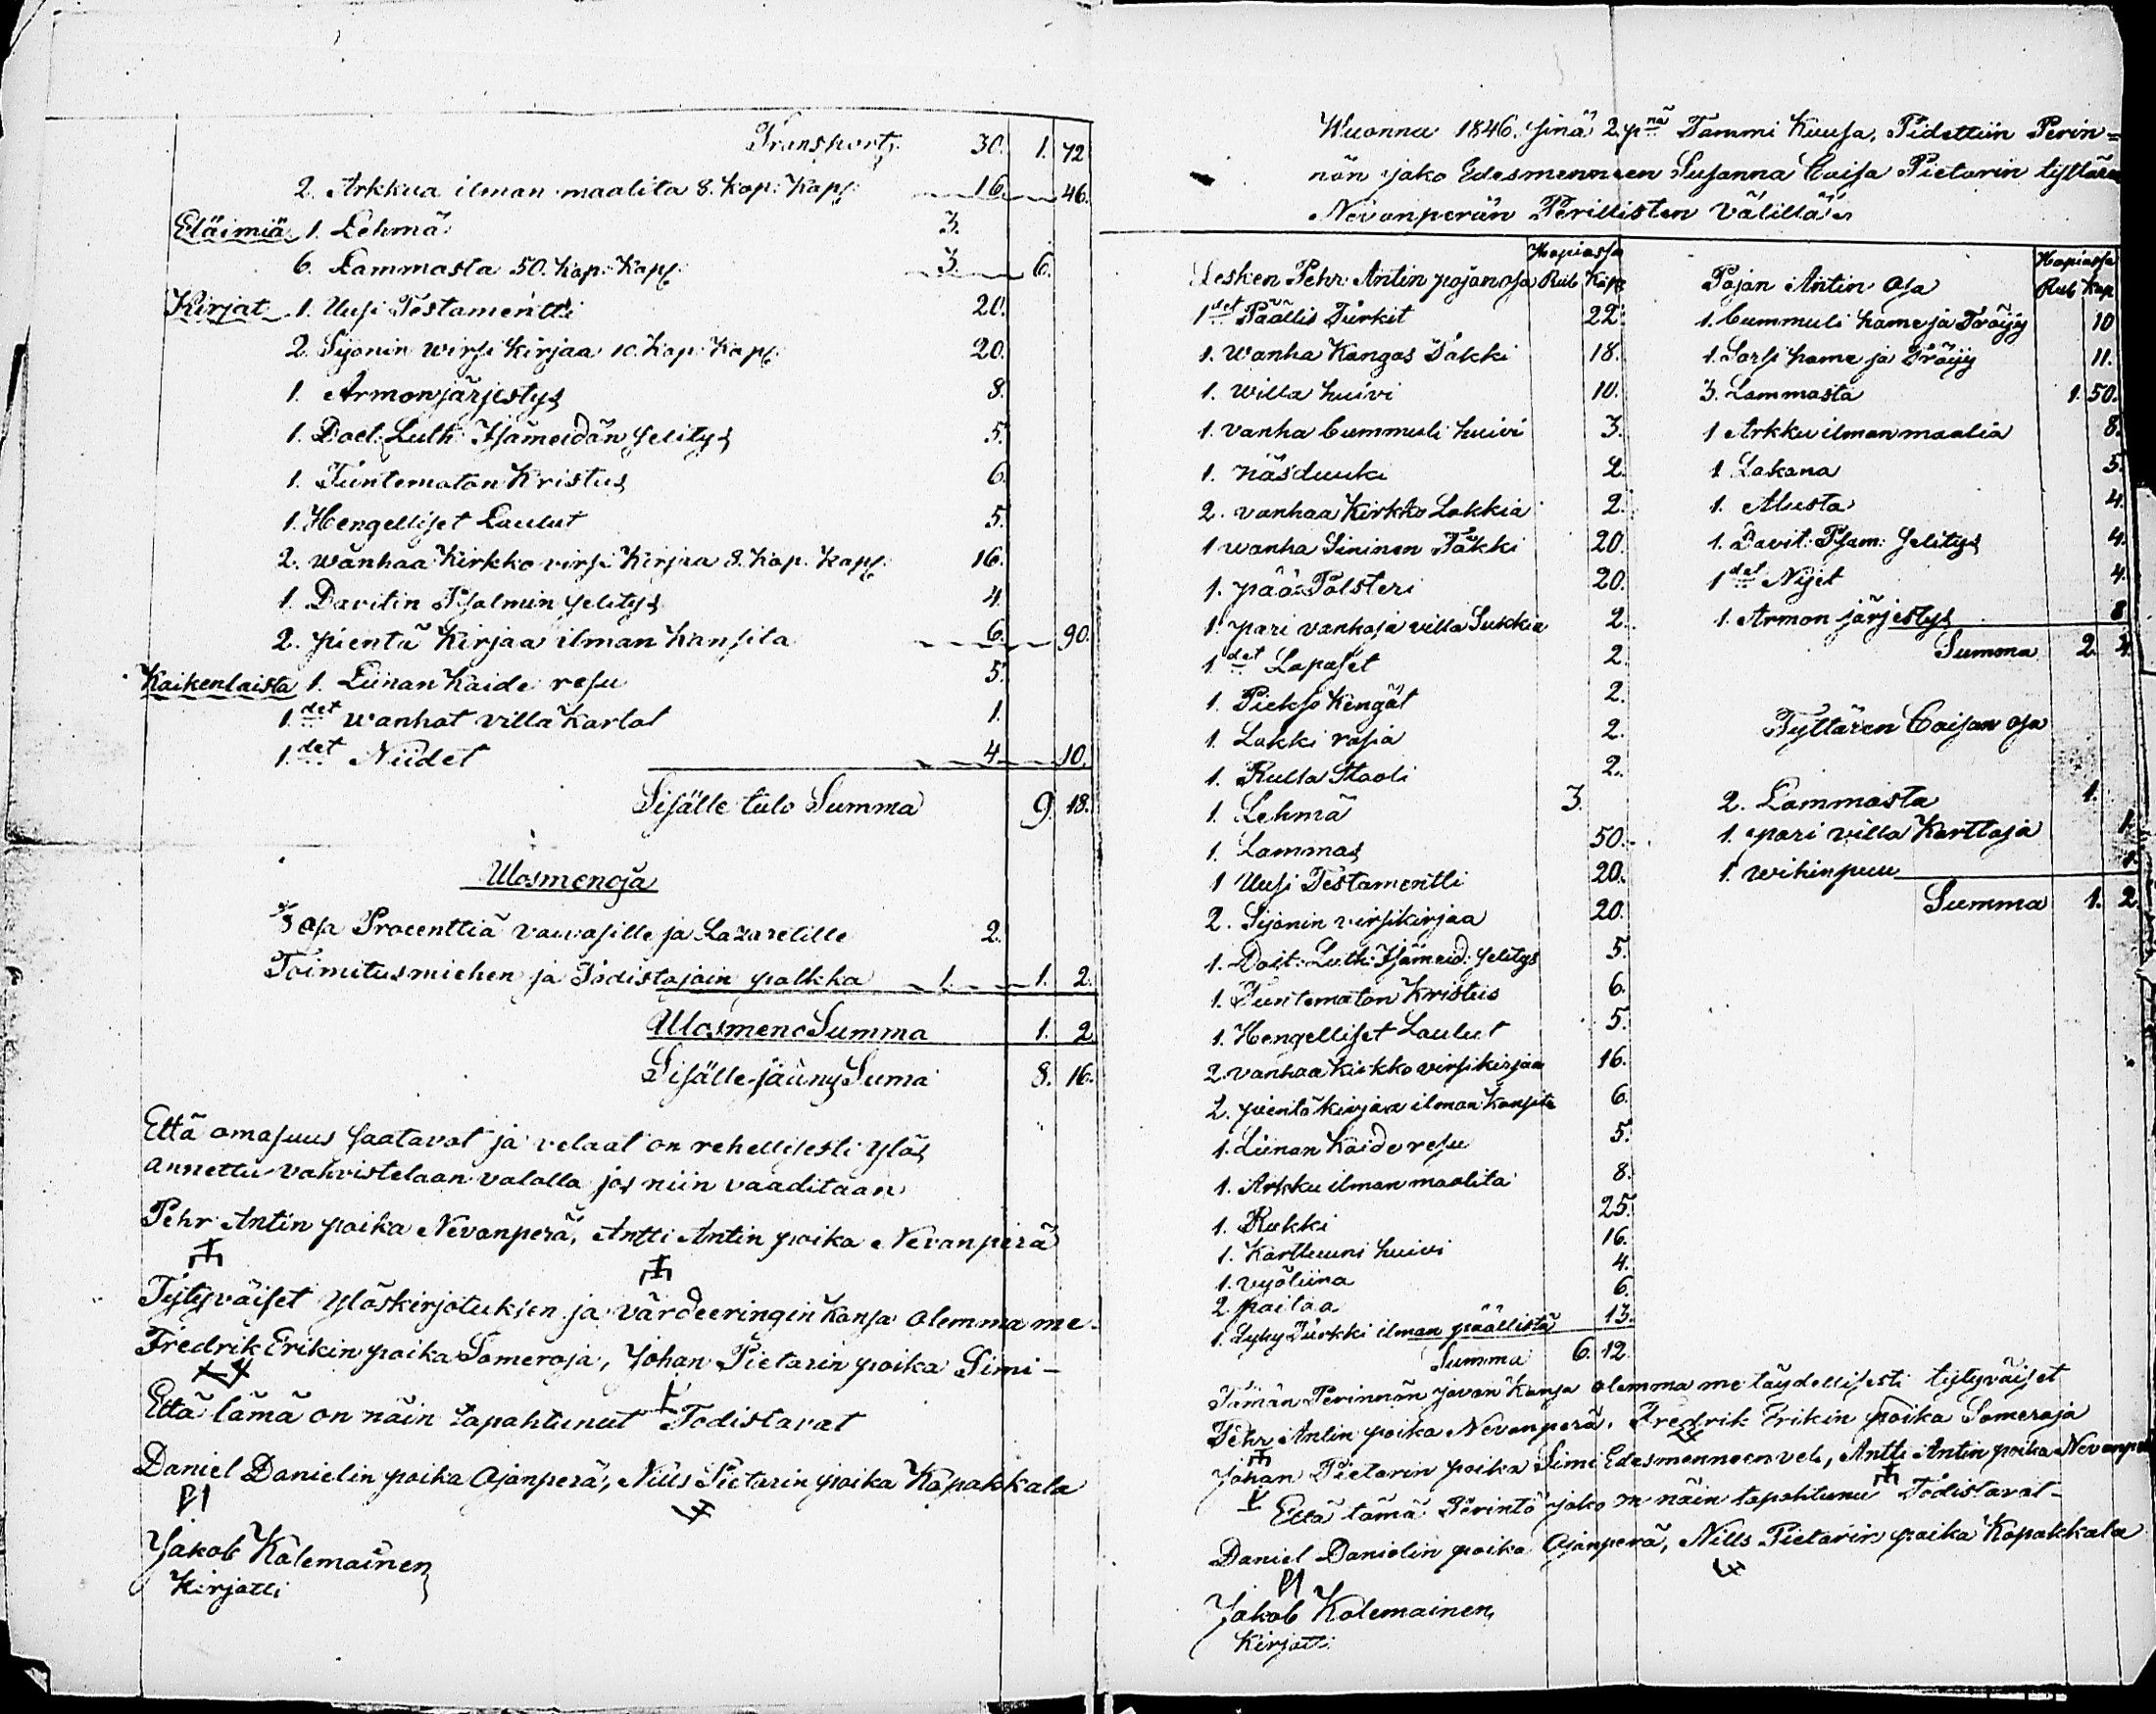 Transport, 30. 1. 72
2. Arkkua ilman maalita 8. kop: Kapl: 16. 46.
Eläimiä 1. Lehmä 3.
6. Lammasta 50. kop: Kapl: 3. 6.
Kirjat 1. Uusi Testamentti 20.
2. Sijonin wirsi kirjaa 10. kop: Kapl: 20.
1. Armonjärjestys 8.
1. Doct: Luth: Isämeidän selitys 5.
1. Tuntematon Kristus 6.
1. Hengelliset Laulut 5.
2. wanhaa Kirkko virsi Kirjaa 8. kop. Kapl: 16.
1. Davitin Psalmin selitys 4.
2. pientä Kirjaa ilman kansita 6. 90.
Kaikenlaista 1. Liinan Kaide resu 5.
1. det wanhat villa Kartat 1.
1. det Niidet 4. 10.
Sisälle tulo Summa 9. 18.
Ulosmenoja
osa Procenttiä vaivasille ja Lazaretille 2.
Toimitusmiehen ja Todistajain palkka 1. 1. 2.
Ulosmeno Summa 1. 2
Sisälle jäänys Suma 8. 16.
Että omasuus saatavat ja velaat on rehellisesti ylös
annettu vahvistelaan valalla jos niin vaaditaan
Pehr Antin poika Nevanperä, Antti Antin poika Nevanperä
Tytyväiset ylöskirjotuksen ja värdeeringin kansa olemma me.
Fredrik Erikin poika Someroja, Johan Pietarin poika Simi-
Että tämä on näin tapahtunut Todistavat
Daniel Danielin poika Ojanperä, Nills Pietarin poika Kopakkala
Jakob Kolemainen
Kirjatti
Wuonna 1846. sinä 2. pnä Tammi Kuusa, Pidettiin Perin=
nön jako Edesmenneen Susanna Caisa Pietarin tyttären
Nevanperän Perillisten välillä
Lesken Pehr Antin pojan osa Hopiassa Rub Kop
1 det Päällis Turkit 22.
1. Wanha Kangas Takki 18.
1. Willa huivi 10.
1. Vanha Cummuli huivi 3.
1. Näsduuki 2.
2. vanhaa Kirkko Lakkia 2.
1 wanha Sininen Takki 20.
1. pää Polsteri 20.
1. pari vanhoja villa Sukkia 2.
1 det Lapaset 2.
1. Piekso Kengät 2.
1. Lakki rasia 2.
1. Rulla Staoli 2.
1. Lehmä 3.
1. Lammas 50.
1 Uusi Testamentti 20.
2. Sijonin virsikirjaa 20.
1. Doct: Luth: Isämeid: selitys 5.
1. Tuntematon Kristus 6.
1. Hengelliset Laulut 5.
2. vanhaa kirkko virsikirjaa 16.
2. pientä kirjaa ilman kansita 6.
1. Liinan Kaide resu 5.
1. Arkku ilman maalita 8.
1. Rukki 25.
1. Karttuuni huivi 16.
1. vyöliina 4.
2. paitaa 6.
1. Lyhy Turkki ilman päällistä 13.
Summa 6. 12.
Pojan Antin Osa Hopiassa Rub Kop
1. Cummuli hame ja Tröijy 10
1. Sarsi hame ja Tröijy 11.
3. Lammasta 1. 50.
1 Arkku ilman maalia 8.
1 Lakana 5.
1. Alusta 4.
1. Davit: Psam: selitys 4.
1 det Nijet 4.
1. Armon järjestys 8
Summa 2. 4.
Tyttären Caisan osa
2. Lammasta 1.
1. pari villa Karttoja 1.
1. wihinpuu 1.
Summa 1. 2.
Tämän Perinnön javon kansa olemma me täydellisesti tytyväiset
Pehr Antin poika Nevanperä. Fredrik Erikin poika Someroja
Johan Pietarin poika Simi Edesmenneen veli, Antti Antin poika Nevanperä
Että tämä Perintö jako on näin tapahtunu Todistavat-
Daniel Danielin poika Ojanperä, Nills Pietarin poika Kopakkala
Jakob Kolemainen,
Kirjatti